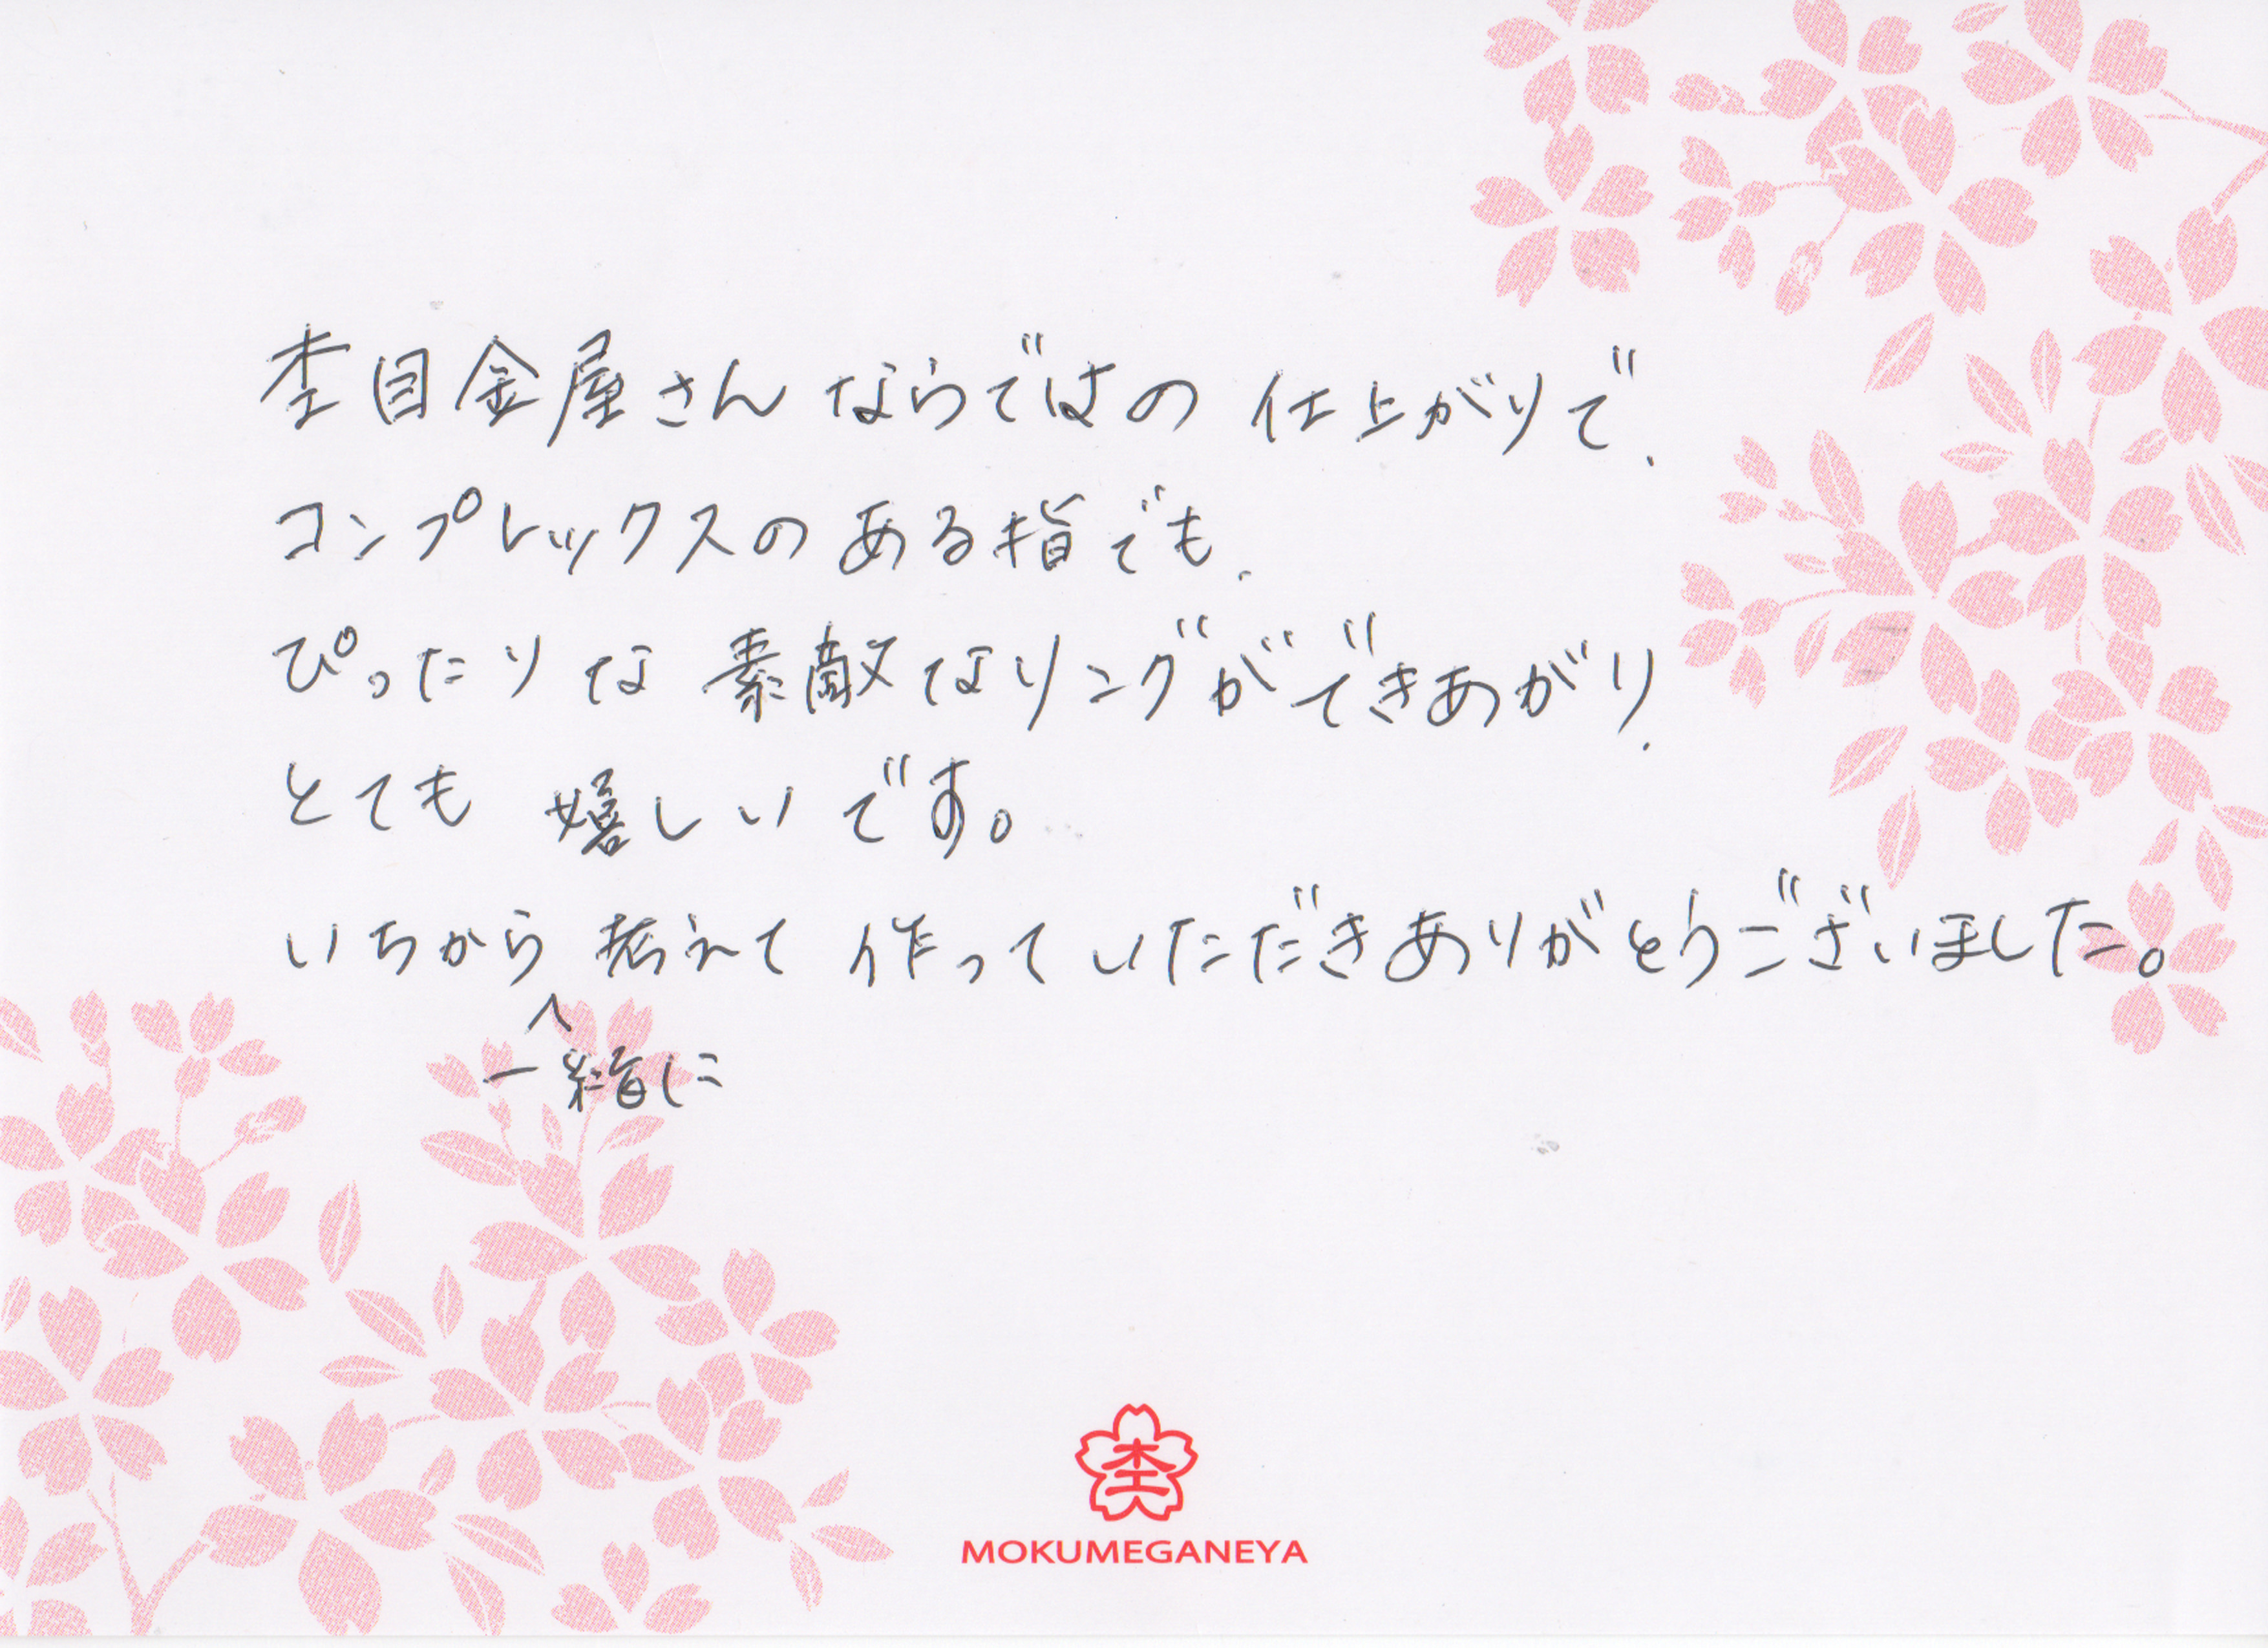 杢目金屋さんならではの仕上がりで、
コンプレックスのある指でも、
ぴったりな素敵なリングができあがり、
とても嬉しいです。
いちから考えて作っていただきありがとうございました。
^
一緒に
杢
MOKUMEGANEYA